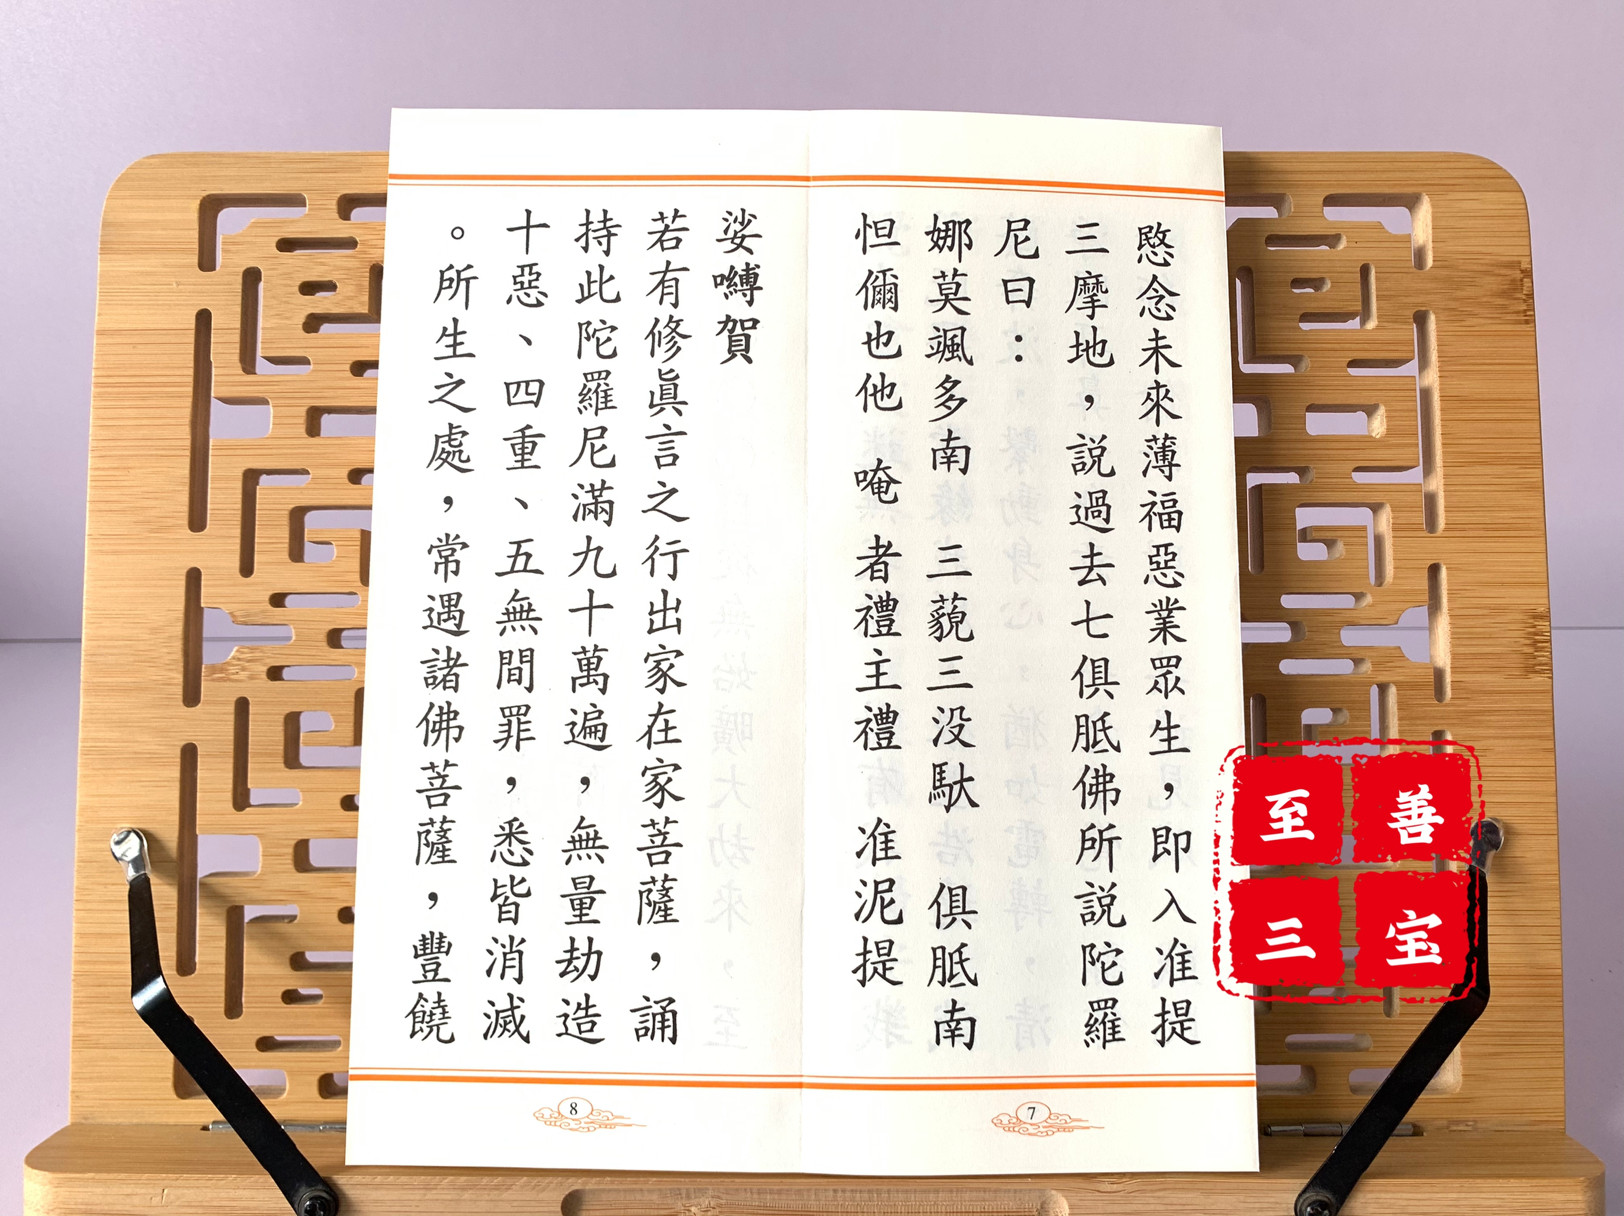 愍念未來薄福惡業眾生，即入准提
三摩地，説過去七俱胝佛所説陀羅
尼曰：
娜莫颯多南 三藐三没馱 俱胝南
怛儞也他 唵 者禮主禮 准泥提
娑嚩賀
若有修眞言之行出家在家菩薩，誦
持此陀羅尼滿九十萬遍，無量劫造
十惡、四重、五無間罪，悉皆消滅
。所生之處，常遇諸佛菩薩，豐饒
7
8
至善
三宝